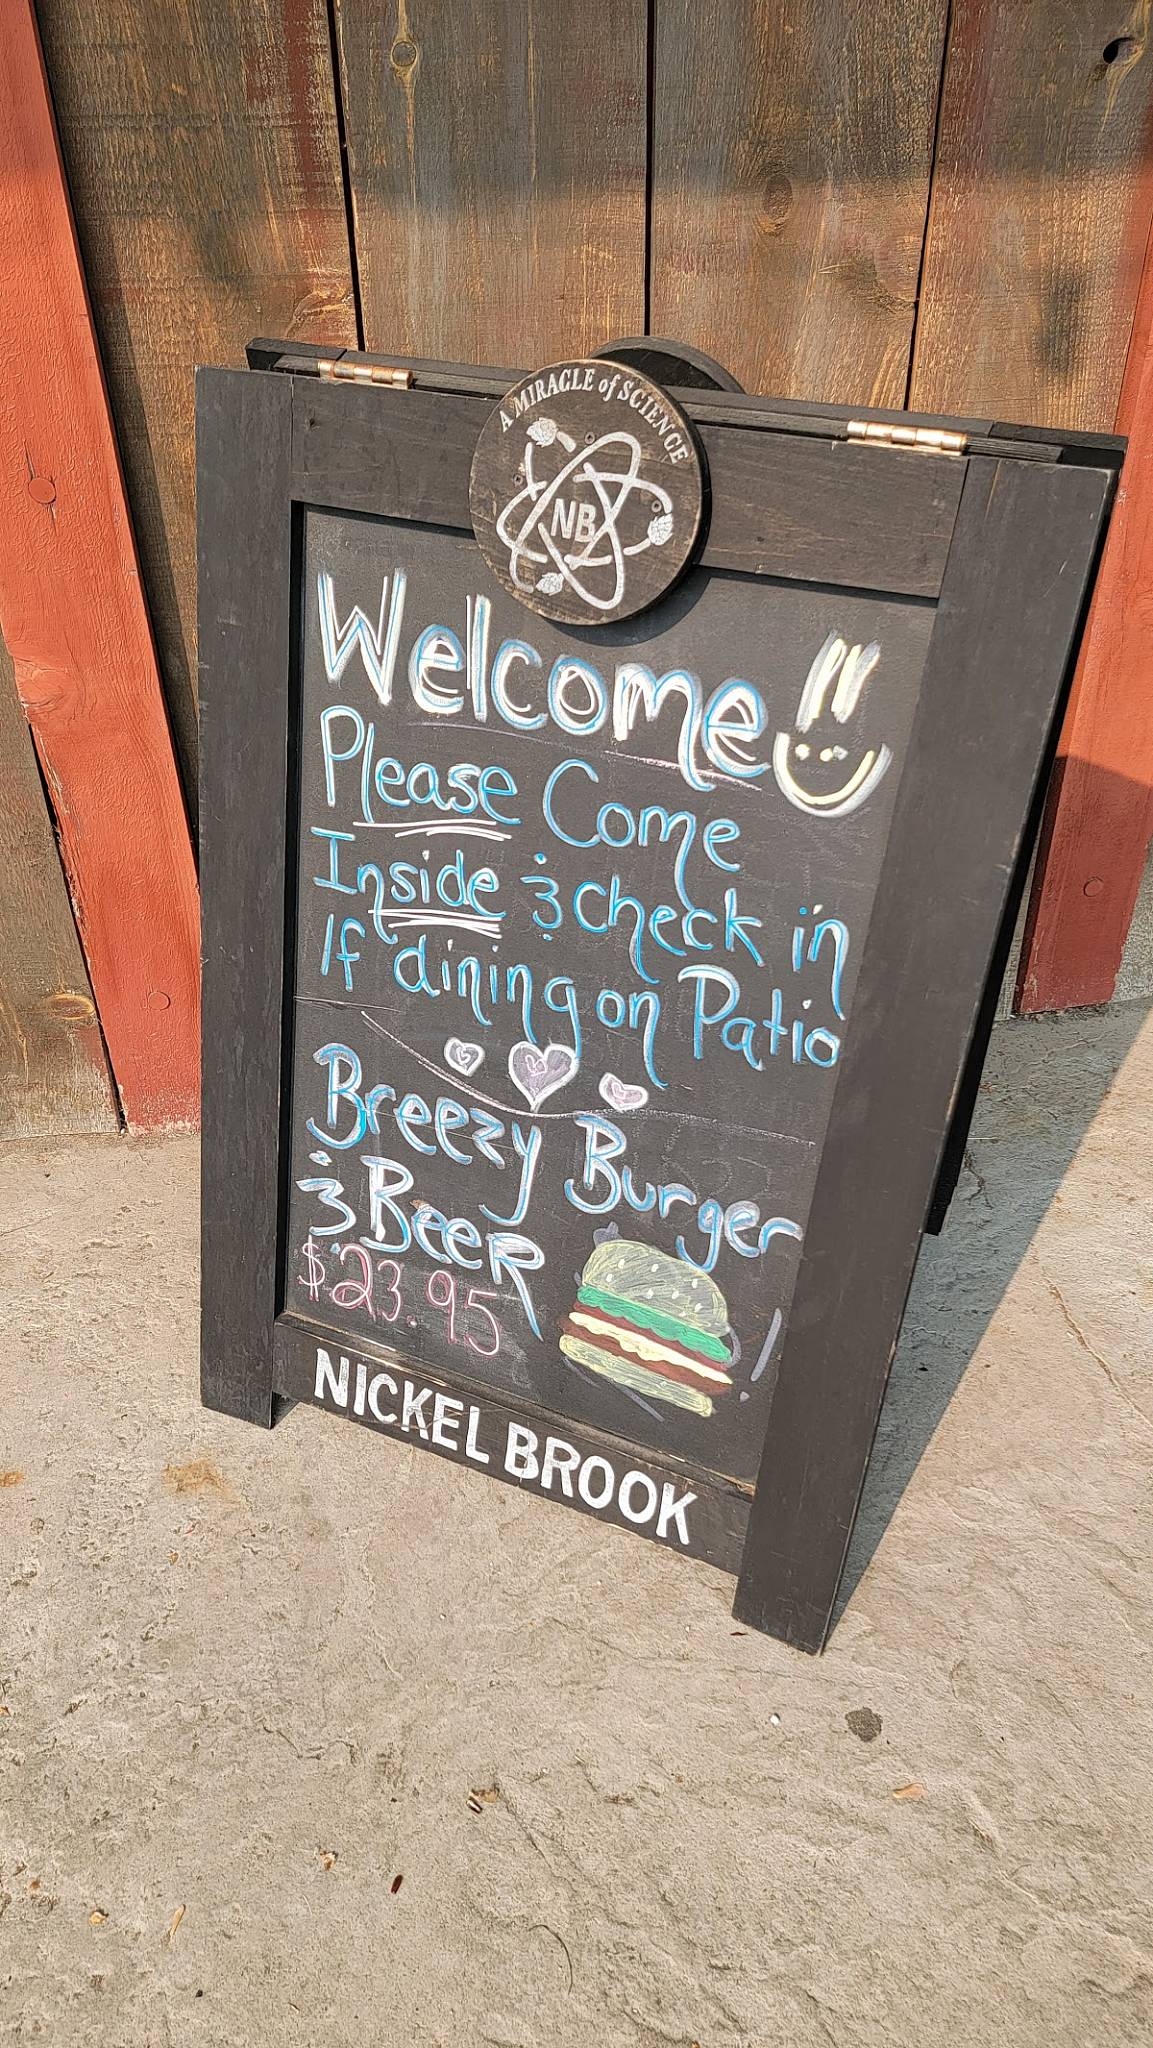 A MIRACLE of SCIENCE
NB
Welcome!!
Please Come
Inside & check in
If dining on Patio
Breezy Burger
& Beer
$23.95
!
NICKEL BROOK